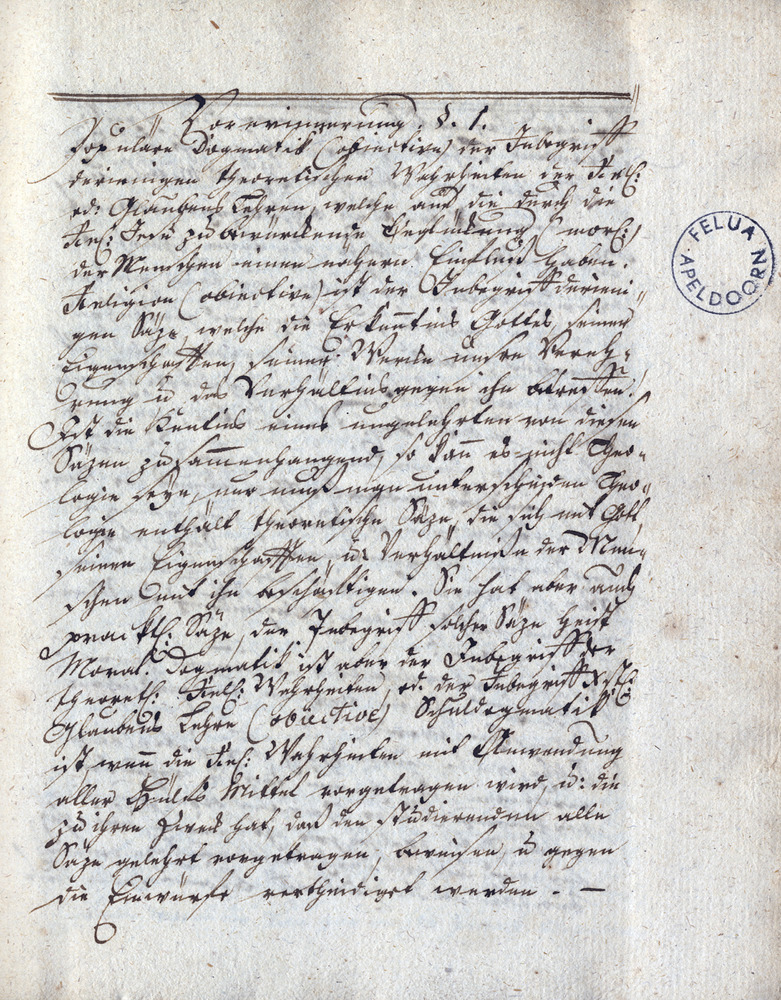 Vorerinnerung. §. 1.
Populäre Dogmatik (obiective) der Inbegriff
derienigen theoretischen Wahrheiten der Rel:
od: Glaubens Lehren, welche auf die durch die
Rel: Jesu zu bewürkende Beglückung (morl:)
der Menschen einen nähern Einfluß haben.
Religion (obiective) ist der Inbegriff derieni„
gen Säze, welche die Erkentnis Gottes, seiner
Eigenschafften, seiner Werke unsre Vereh„
rung u das Verhältnis gegen ihn betreffen.
Ist die Kentnis eines ungelehrten von diesen
Säzen zusammenhangend, so kann es nicht Theo„
logie seyn, nur muß man unterscheiden Theo„
logie enthält theoretische Säze, die sich mit Gott,
seinen Eigenschafften, u: Verhältnißen der Men„
schen mit ihn beschäftigen. Sie hat aber auch
prackt: Säze, der Inbegriff solcher Säze heist
Moral. Dogmatik ist aber der Inbegriff der
theoret: Rel: Wahrheiten, od. der Inbegriff
Glaubens Lehre (obiective) Schuldogmatik
ist, wenn die Rel: Wahrheiten mit Anwendung
aller Hülfs Mittel vorgetragen wird, u: die
zu ihren Zweck hat, daß den studierenden alle
Säze gelehrt vorgetragen, beweisen, u gegen
die Einwürfe vertheidiget werden. —
FELUA APELDOORN